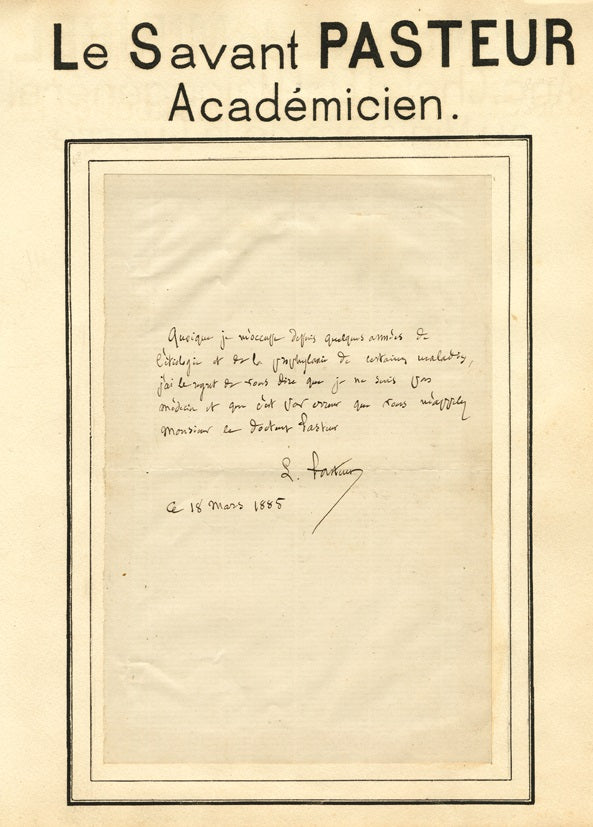 Le Savant PASTEUR
Académicien.
Quoique je m'occupe depuis quelques années de
l'étiologie et de la prophylaxie de certaines maladies,
j'ai le regret de vous dire que je ne suis pas
médecin et que c'est par erreur que vous m'appelez
Monsieur le Docteur Pasteur
L. Pasteur
Ce 18 Mars 1885